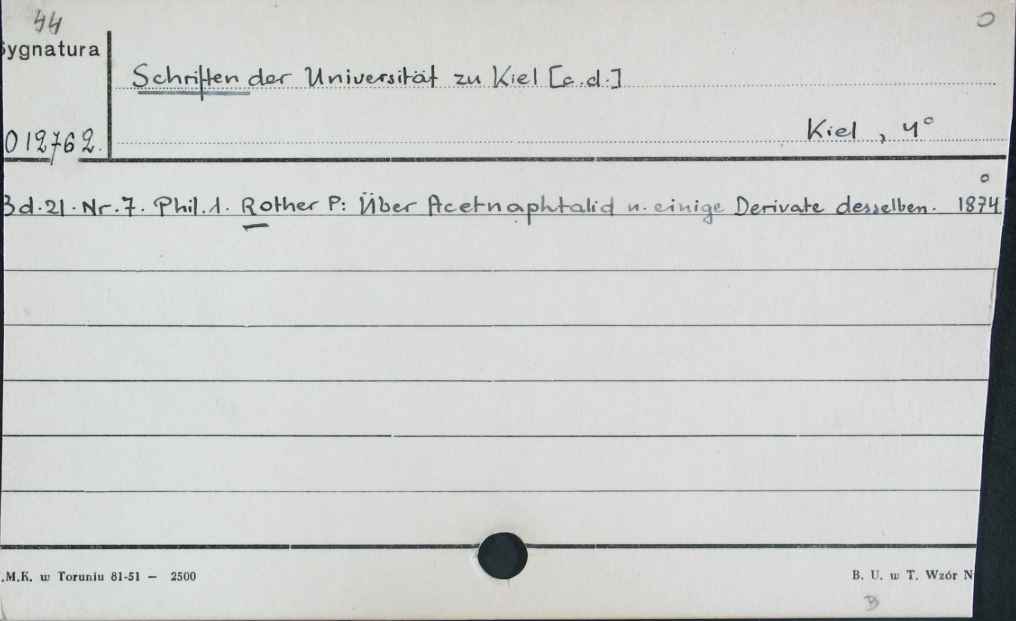 44
Sygnatura
O
Schriften der Universität zu Kiel [c.d.]
012762.
Kiel, 4°
Bd.21. Nr.7. Phil.1. Rother P: Über Acetnaphtalid u. einige Derivate desselben. 1874
.M.K. w Toruniu 81-51 — 2500
B. U. w T. Wzór N
B